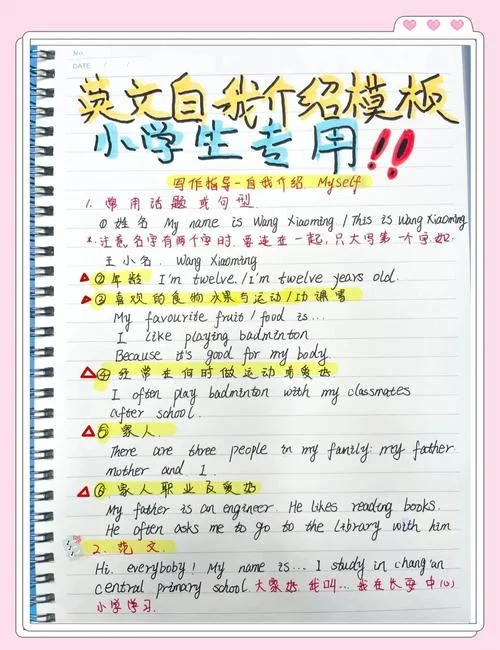 No.
DATE / /
英文自我介绍模板
小学生专用!!
写作指导-自我介绍 Myself
1. 常用话题或句型
① 姓名 My name is Wang Xiaoming / This is Wang Xiaoming
*.注意名字有两个字时,要连在一起,只大写第一个字.如:
王小名. Wang Xiaoming
△② 年龄 I'm twelve. / I'm twelve years old.
△③ 喜欢的食物水果与运动/功课
My favourite fruit / food is...
I like playing badminton
Because it's good for my body
△④ 经常在何时做运动或爱好
I often play badminton with my classmates
after school.
△⑤ 家人.
There are three people in my family: my father.
mother and I.
△⑥ 家人职业及爱好
My father is an engineer. He likes reading books.
He often asks me to go to the library with him
2. 范文.
Hi. everyboby! My name is... I study in chang'an
central primary school. 大家好 我叫... 我在长安中心
小学学习.